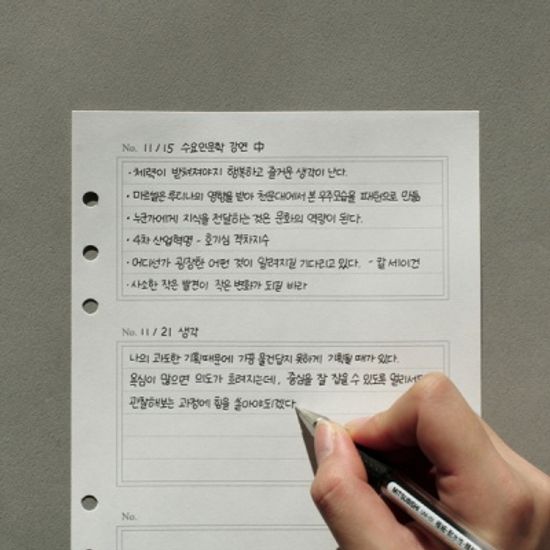 No. 11/15 수요인문학 강연 中
· 체력이 받쳐줘야지 행복하고 즐거운 생각이 난다.
· 마르셀은 루리나의 영향을 받아 천문대에서 본 우주모습을 패턴으로 만듦
· 누군가에게 지식을 전달하는 것은 문화의 역량이 된다.
· 4차 산업혁명 - 호기심 격차지수
· 어디선가 굉장한 어떤 것이 알려지길 기다리고 있다. - 칼 세이건
· 사소한 작은 발견이 작은 변화가 되길 바라
No. 11/21 생각
나의 과도한 기획때문에 가끔 물건답지 못하게 기획될 때가 있다.
욕심이 많으면 의도가 흐려지는데, 중심을 잘 잡을 수 있도록 멀리서
관찰해보는 과정에 힘을 쏟아야되겠다
No.
MITSUBISHI